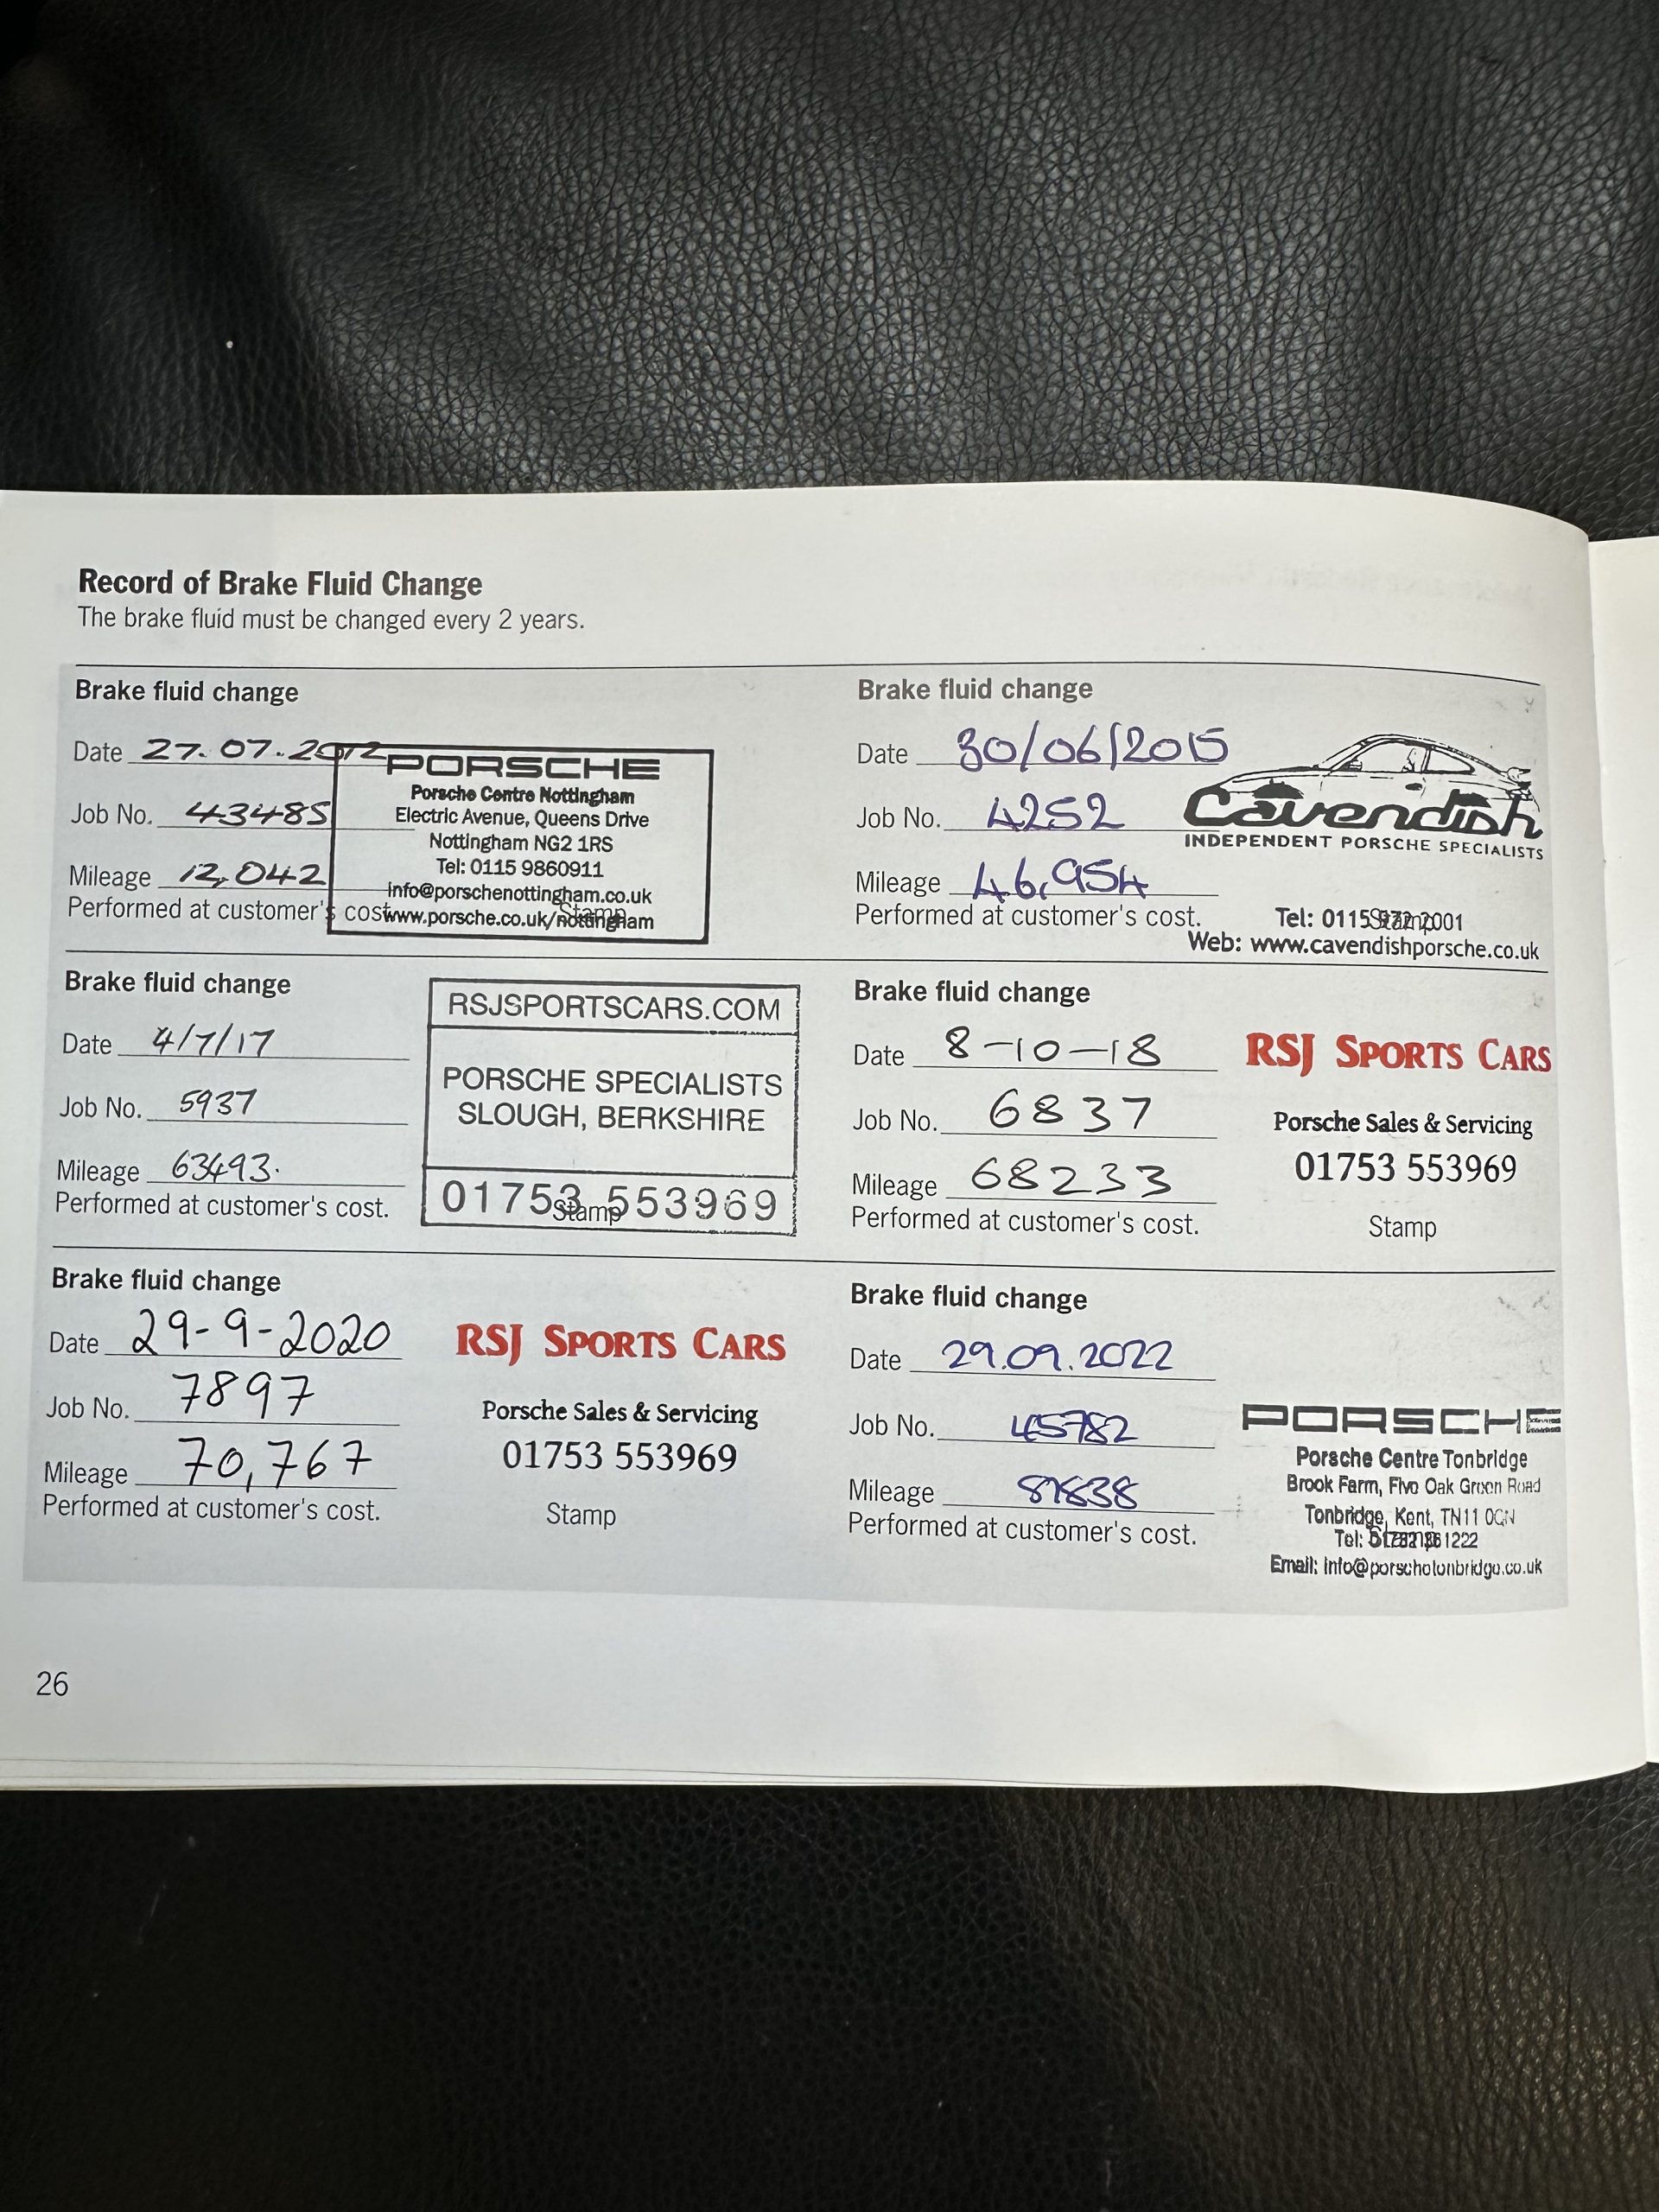 Record of Brake Fluid Change
The brake fluid must be changed every 2 years.
Brake fluid change
Date 27.07.2012
Job No. 43485
Mileage 12,042
Performed at customer's cost.
PORSCHE
Porsche Centre Nottingham
Electric Avenue, Queens Drive
Nottingham NG2 1RS
Tel: 0115 9860911
info@porschenottingham.co.uk
www.porsche.co.uk/nottingham
Stamp
Brake fluid change
Date 30/06/2015
Job No. 4252
Mileage 46,954
Performed at customer's cost.
Cavendish
INDEPENDENT PORSCHE SPECIALISTS
Tel: 0115 972 2001
Stamp
Web: www.cavendishporsche.co.uk
Brake fluid change
Date 4/7/17
Job No. 5937
Mileage 63493.
Performed at customer's cost.
RSJSPORTSCARS.COM
PORSCHE SPECIALISTS
SLOUGH, BERKSHIRE
01753 553969
Stamp
Brake fluid change
Date 8-10-18
Job No. 6837
Mileage 68233
Performed at customer's cost.
RSJ SPORTS CARS
Porsche Sales & Servicing
01753 553969
Stamp
Brake fluid change
Date 29-9-2020
Job No. 7897
Mileage 70,767
Performed at customer's cost.
RSJ SPORTS CARS
Porsche Sales & Servicing
01753 553969
Stamp
Brake fluid change
Date 29.09.2022
Job No. 45782
Mileage
Performed at customer's cost.
PORSCHE
Porsche Centre Tonbridge
Brook Farm, Five Oak Green Road
Tonbridge, Kent, TN11 0QN
Tel: 1222
Stamp
Email: info@porschetonbridge.co.uk
26